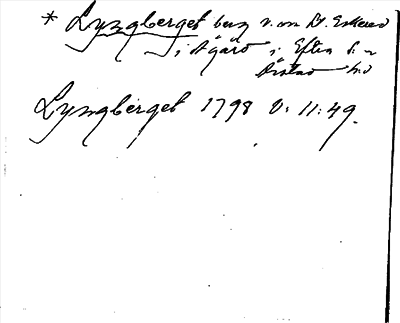 * Lyngberget berg v. om St. Eskered
i Ågård i Eftra s:n
Årstad hd
Lyngberget 1798 V: 11:49.